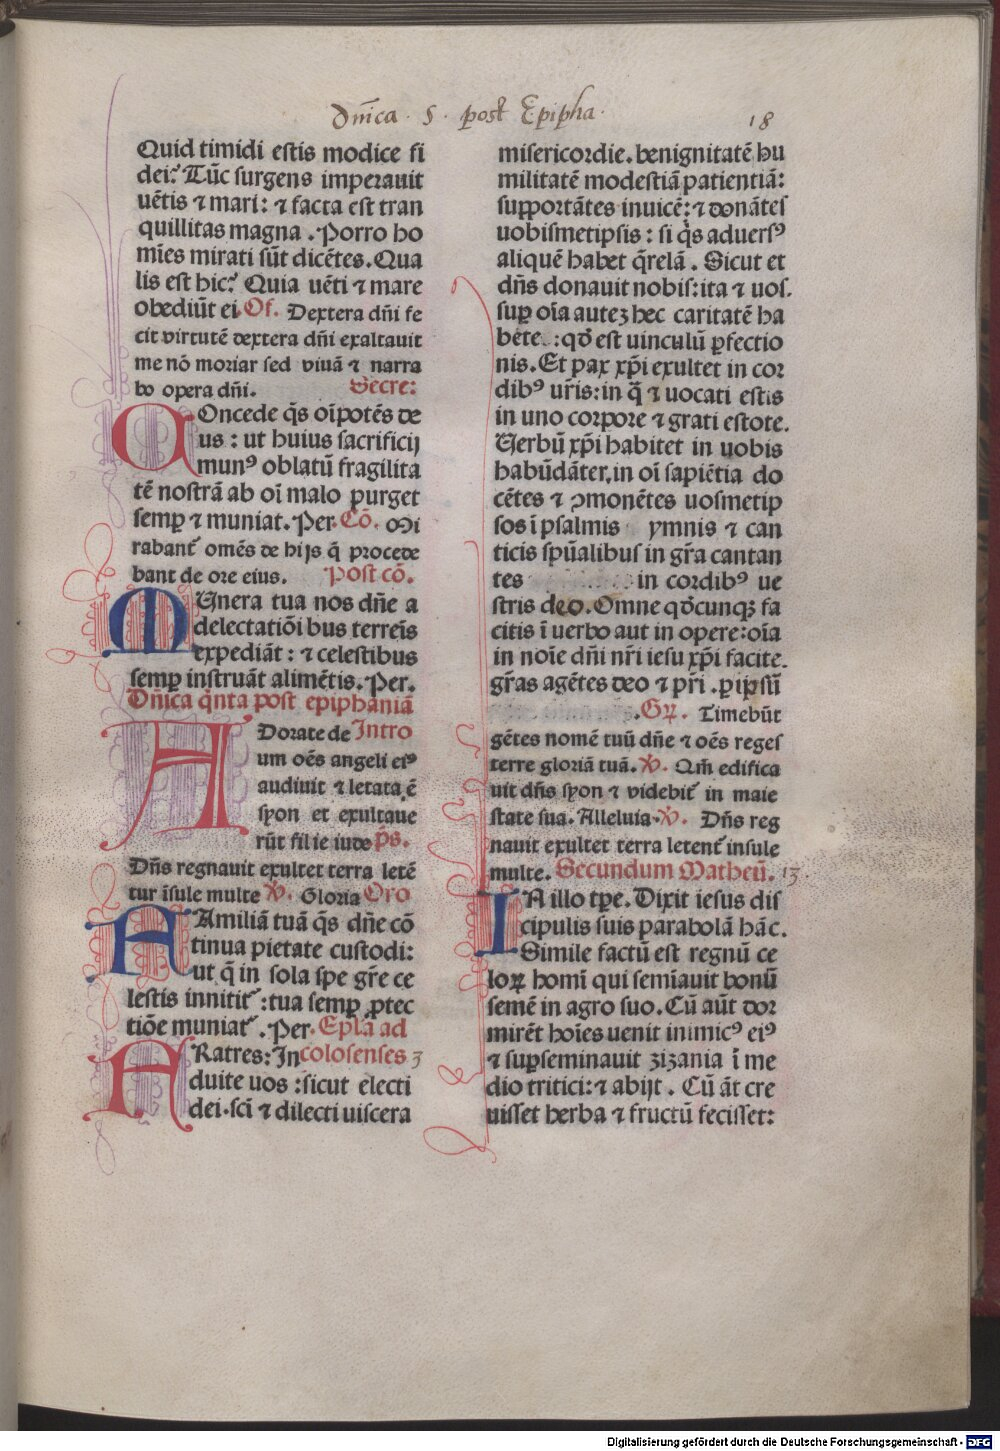 Dn̄ica · 5 · post Epipha ·
18
Quid timidi estis modice fi
dei? Tūc surgens imperauit
uētis ⁊ mari: ⁊ facta est tran
quillitas magna . Porro ho
mīes mirati sūt dicētes. Qua
lis est hic? Quia uēti ⁊ mare
obediūt ei. Of. Dextera dn̄i fe
cit virtutē dextera dn̄i exaltauit
me nō moriar sed viuā ⁊ narra
bo opera dn̄i. Secre:
COncede q̄s oīpotēs de
us : ut huius sacrificij
munꝰ oblatū fragilita
tē nostrā ab oī malo purget
semꝑ ⁊ muniat. Per. Cō. Mi
rabant᷑ omēs de hijs q̄ procede
bant de ore eius. Post cō.
MUnera tua nos dn̄e a
delectatiōi bus terreīs
expediāt : ⁊ celestibus
semꝑ instruāt alimētis. Per.
Dn̄ica q̄nta post epiphaniā
ADorate de Intro
um oēs angeli eiꝰ
audiuit ⁊ letata ē
syon et exultaue
rūt filie iude p̄s.
Dn̄s regnauit exultet terra letē
tur īsule multe ℣. Gloria Oro
FAmiliā tuā q̄s dn̄e cō
tinua pietate custodi:
ut q̄ in sola spe gr̄e ce
lestis innitit᷑ : tua semꝑ ꝓtec
tiōe muniat᷑ . Per. Epl̄a ad
FRatres: In colosenses 3
duite uos : sicut electi
dei. sc̄i ⁊ dilecti uiscera
misericordie. benignitatē hu
militatē modestiā patientiā:
supportātes inuicē: ⁊ donātes
uobismetipsis : si q̄s aduersꝰ
aliquē habet q̄relā . Sicut et
dn̄s donauit nobis: ita ⁊ uos.
suꝑ oīa autez hec caritatē ha
bete . : qđ est uinculū ꝑfectio
nis. Et pax xp̄i exultet in cor
dibꝰ ur̄is: in q̄ ⁊ uocati estis
in uno corpore ⁊ grati estote.
Uerbū xp̄i habitet in uobis
habūdāter, in oī sapiētia do
cētes ⁊ ꝯmonētes uosmetip
sos ī psalmis ymnis ⁊ can
ticis sp̄ualibus in gr̄a cantan
tes in cordibꝰ ue
stris deo. Omne qđcunqꝫ fa
citis ī uerbo aut in opere: oīa
in noīe dn̄i nr̄i iesu xp̄i facite.
gr̄as agētes deo ⁊ pr̄i . ꝑ ipsū
. Gꝝ. Timebūt
gētes nomē tuū dn̄e ⁊ oēs reges
terre gloriā tuā. ℣. Qm̄ edifica
uit dn̄s syon ⁊ videbit᷑ in maie
state sua. Alleluia. ℣. Dn̄s reg
nauit exultet terra letent᷑ insule
multe. Secundum Matheū. 13.
IN illo tp̄e. Dixit iesus dis
cipulis suis parabolā hāc.
Simile factū est regnū ce
loꝝ homī qui semīauit bonū
semē in agro suo. Cū aūt dor
mirēt hoīes uenit inimicꝰ eiꝰ
⁊ suꝑseminauit zizania ī me
dio tritici: ⁊ abijt . Cū āt cre
uisset herba ⁊ fructū fecisset:
Digitalisierung gefördert durch die Deutsche Forschungsgemeinschaft - DFG